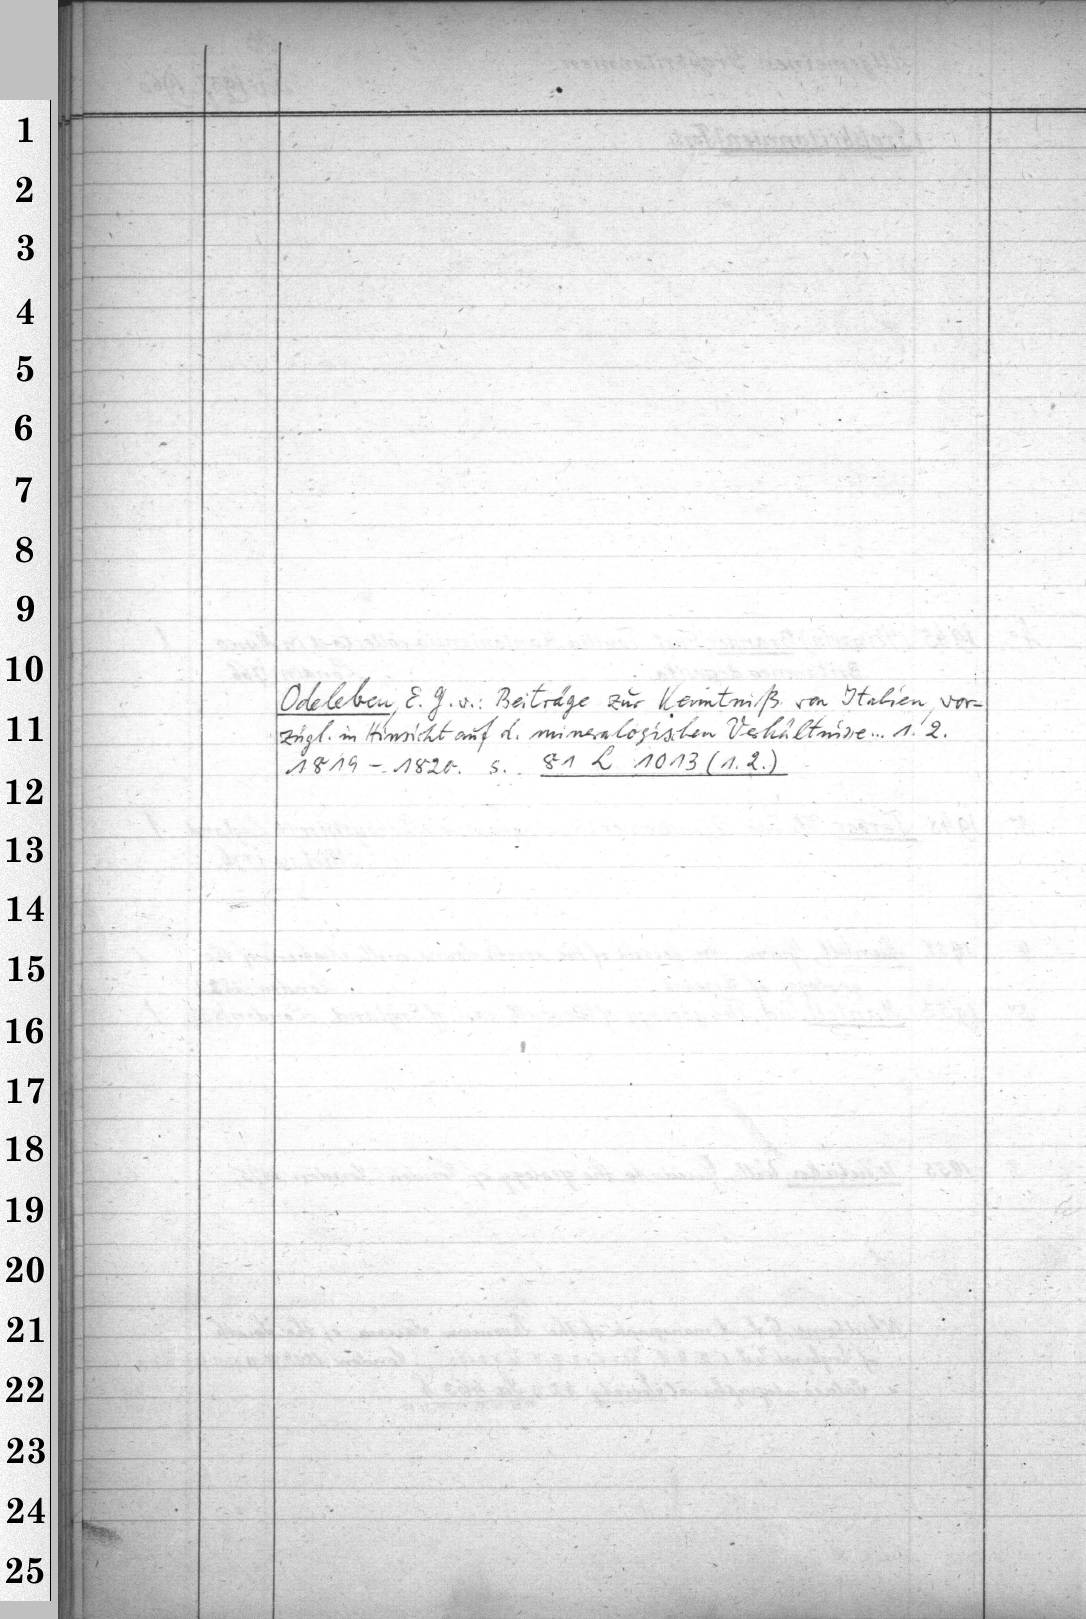 1
2
3
4
5
6
7
8
9
10
Odeleben, E. G. v.: Beiträge zur Kenntniß von Italien, vor-
11
zügl. in Hinsicht auf d. mineralogischen Verhältnisse... 1. 2.
1819 - 1820. s. 81 L 1013 (1. 2.)
12
13
14
15
16
17
18
19
20
21
22
23
24
25